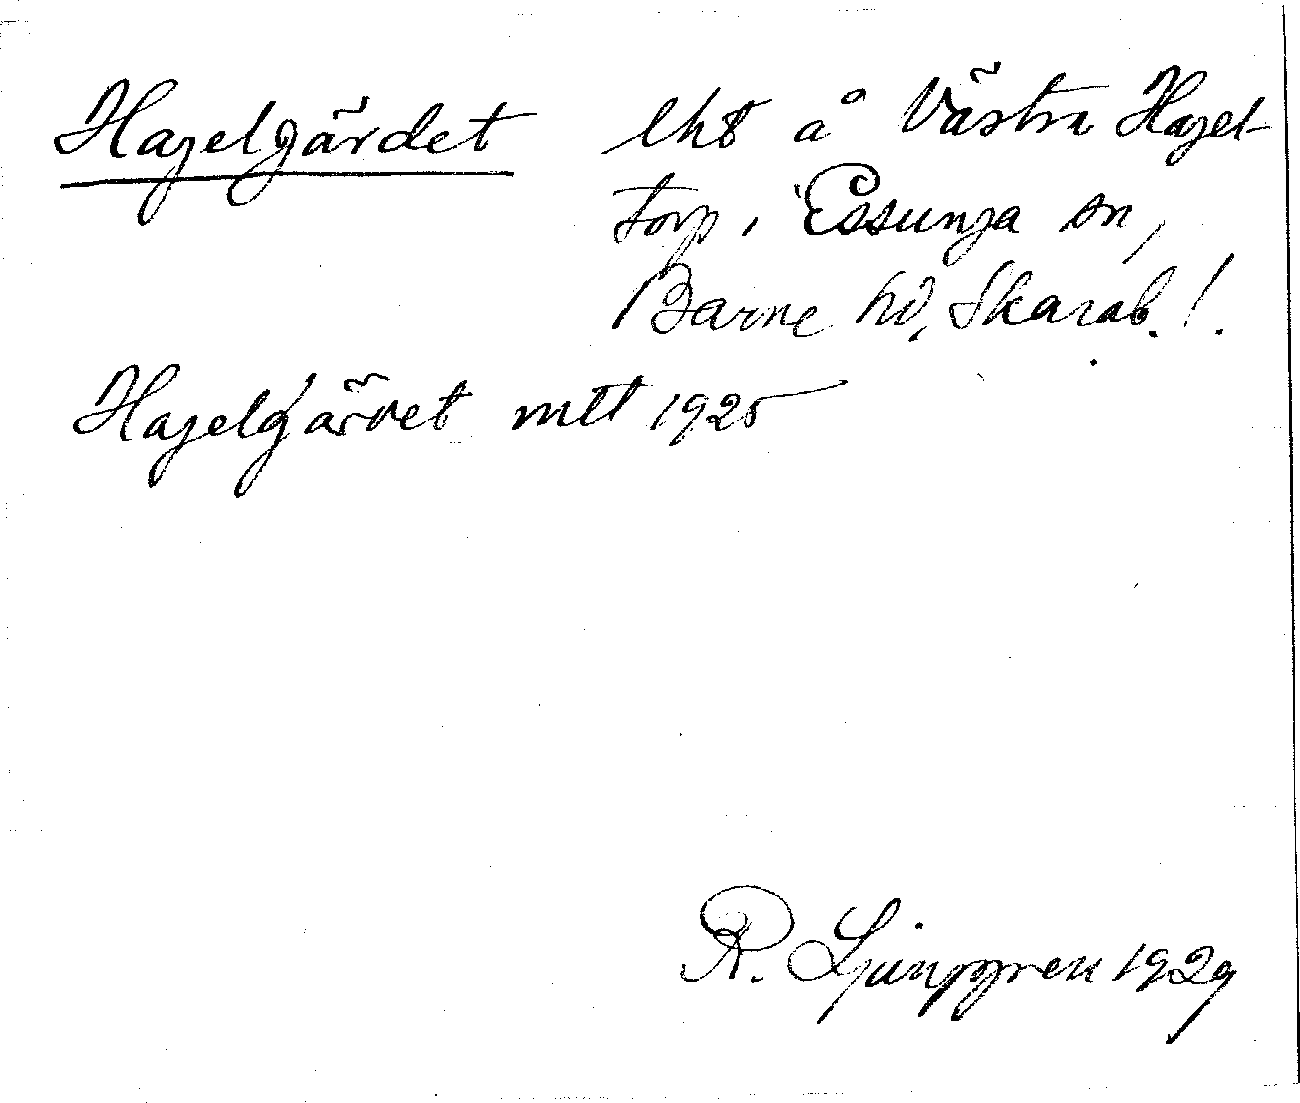 Hagelgärdet lht å Västra Hagel-
torp, Essunga sn,
Barne hd, Skarab. !.
Hagelgärdet mtt 1925
R. Ljunggren 1929